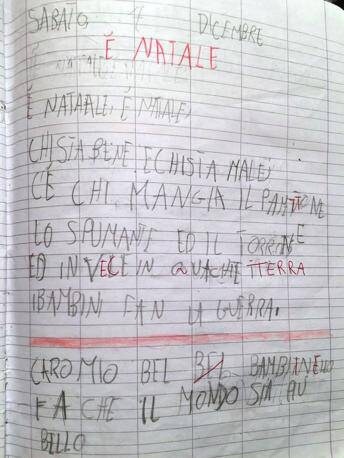 SABATO 4 DICEMBRE
È NATALE
È NATAALE, È NATALE,
CHI STA BENE, E CHI STA MALE,
CÈ CHI, MANGIA IL PANTTONE
LO SPUMANTE ED IL TORRONE
ED IN VECE IN QUACHE TTERRA
I BAMBINI FAN LA GUERRA.
CARO MIO BEL BEL BAMBINELLO
FA CHE IL MONDO SIA
BELLO